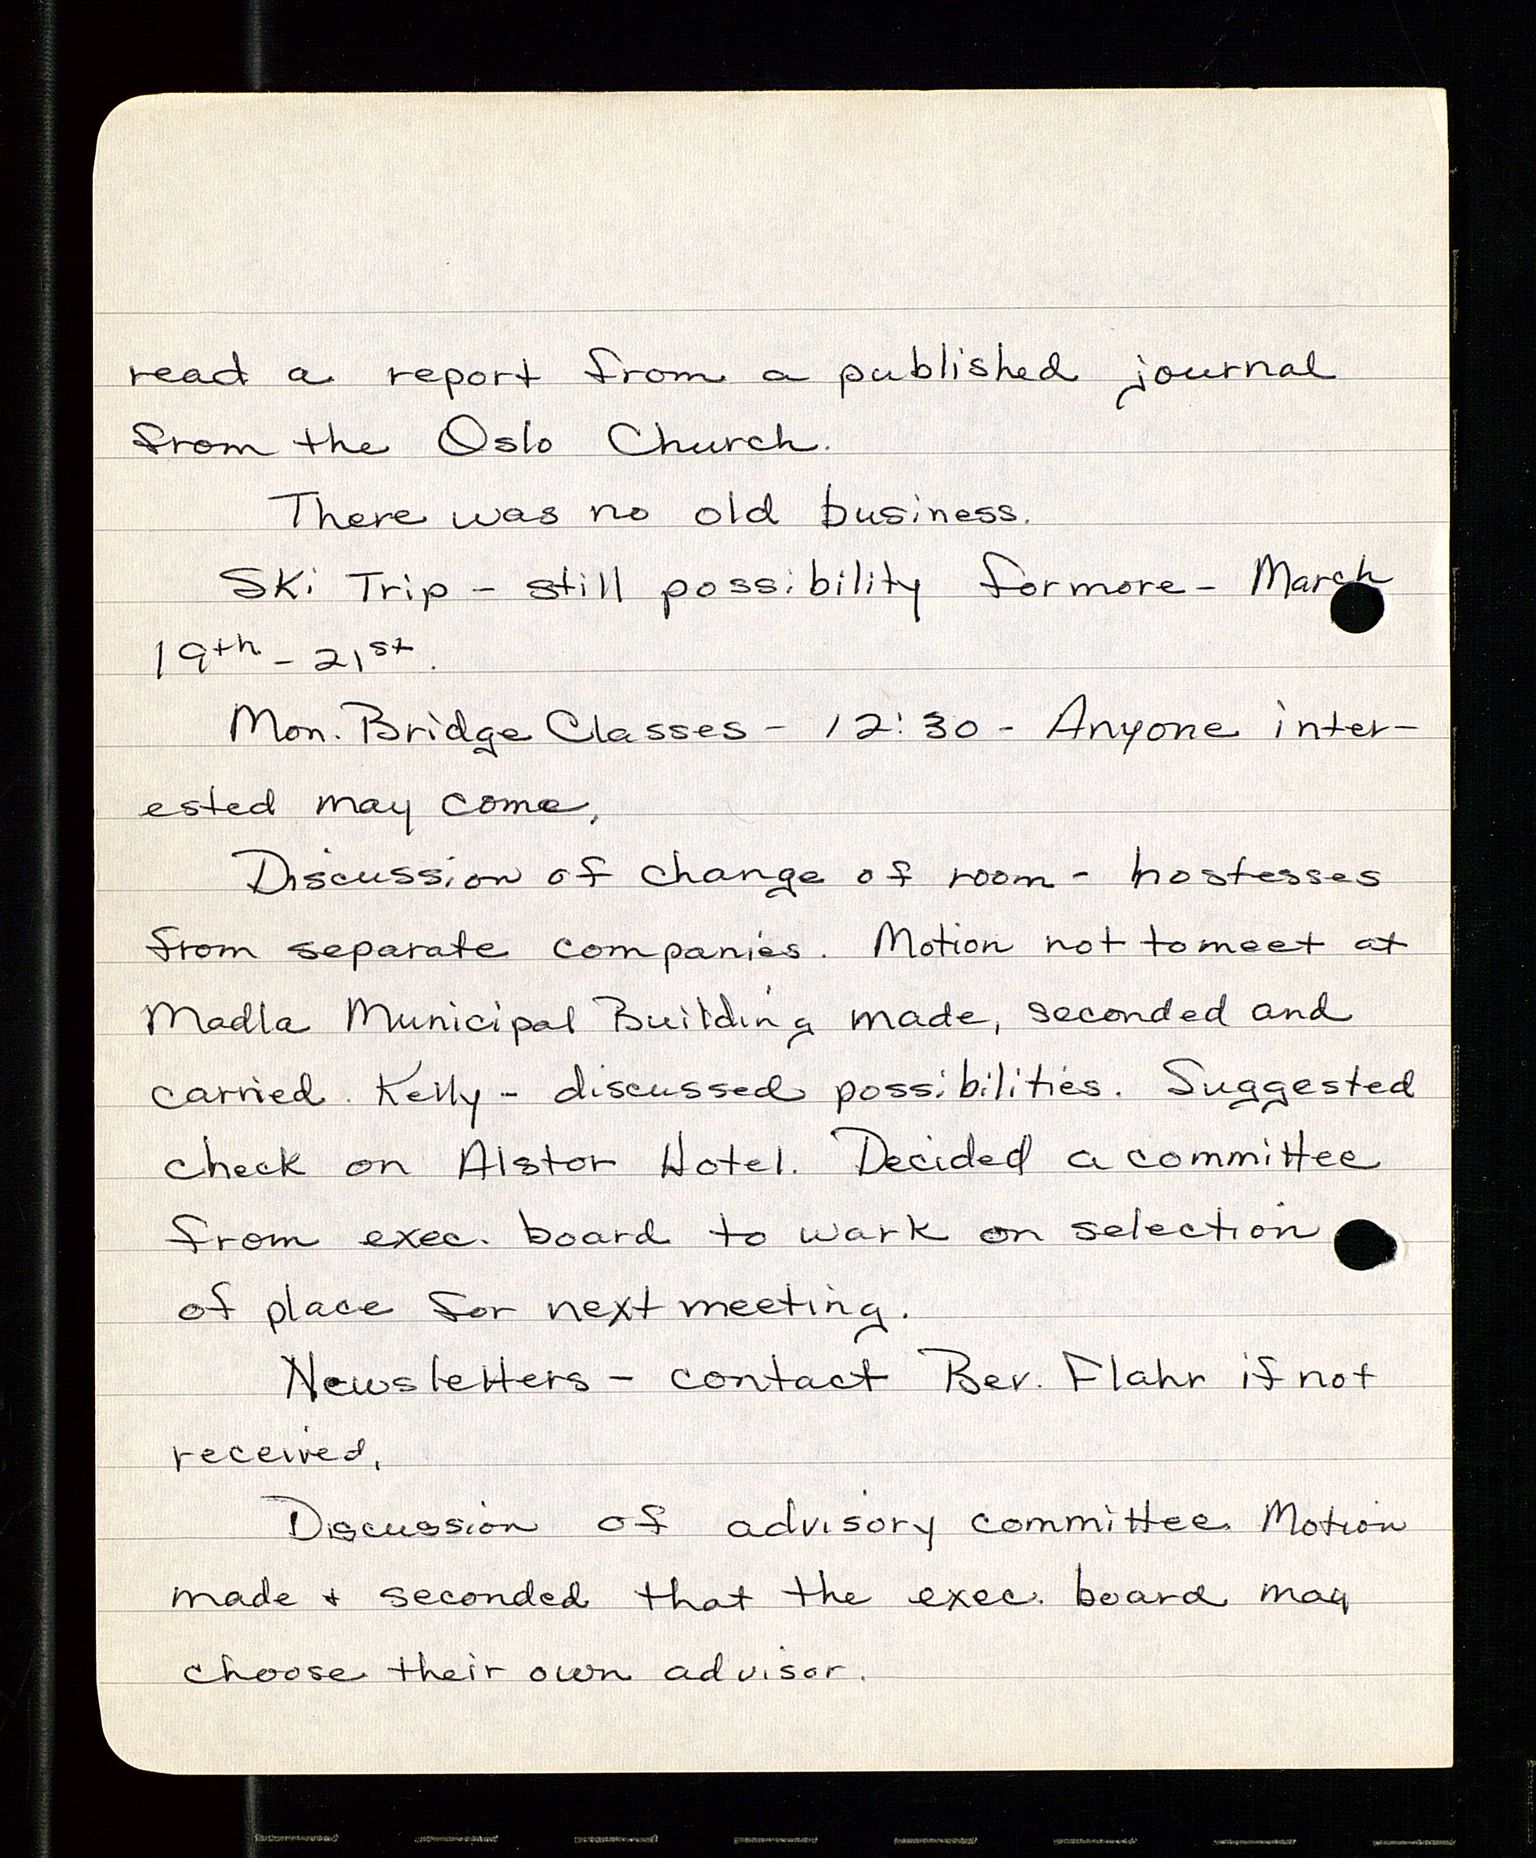 read a report from a published journal
from the Oslo Church.
There was no old business.
Ski Trip - still possibility for more - March
19th - 21st.
Mon. Bridge Classes - 12:30 - Anyone inter-
ested may come.
Discussion of change of room - hostesses
from separate companies. Motion not to meet at
Madla Municipal Building made, seconded and
carried. Kelly - discussed possibilities. Suggested
check on Alstor Hotel. Decided a committee
from exec. board to work on selection
of place for next meeting.
Newsletters - contact Bev. Flahr if not
received.
Discussion of advisory committee. Motion
made + seconded that the exec. board may
choose their own advisor.